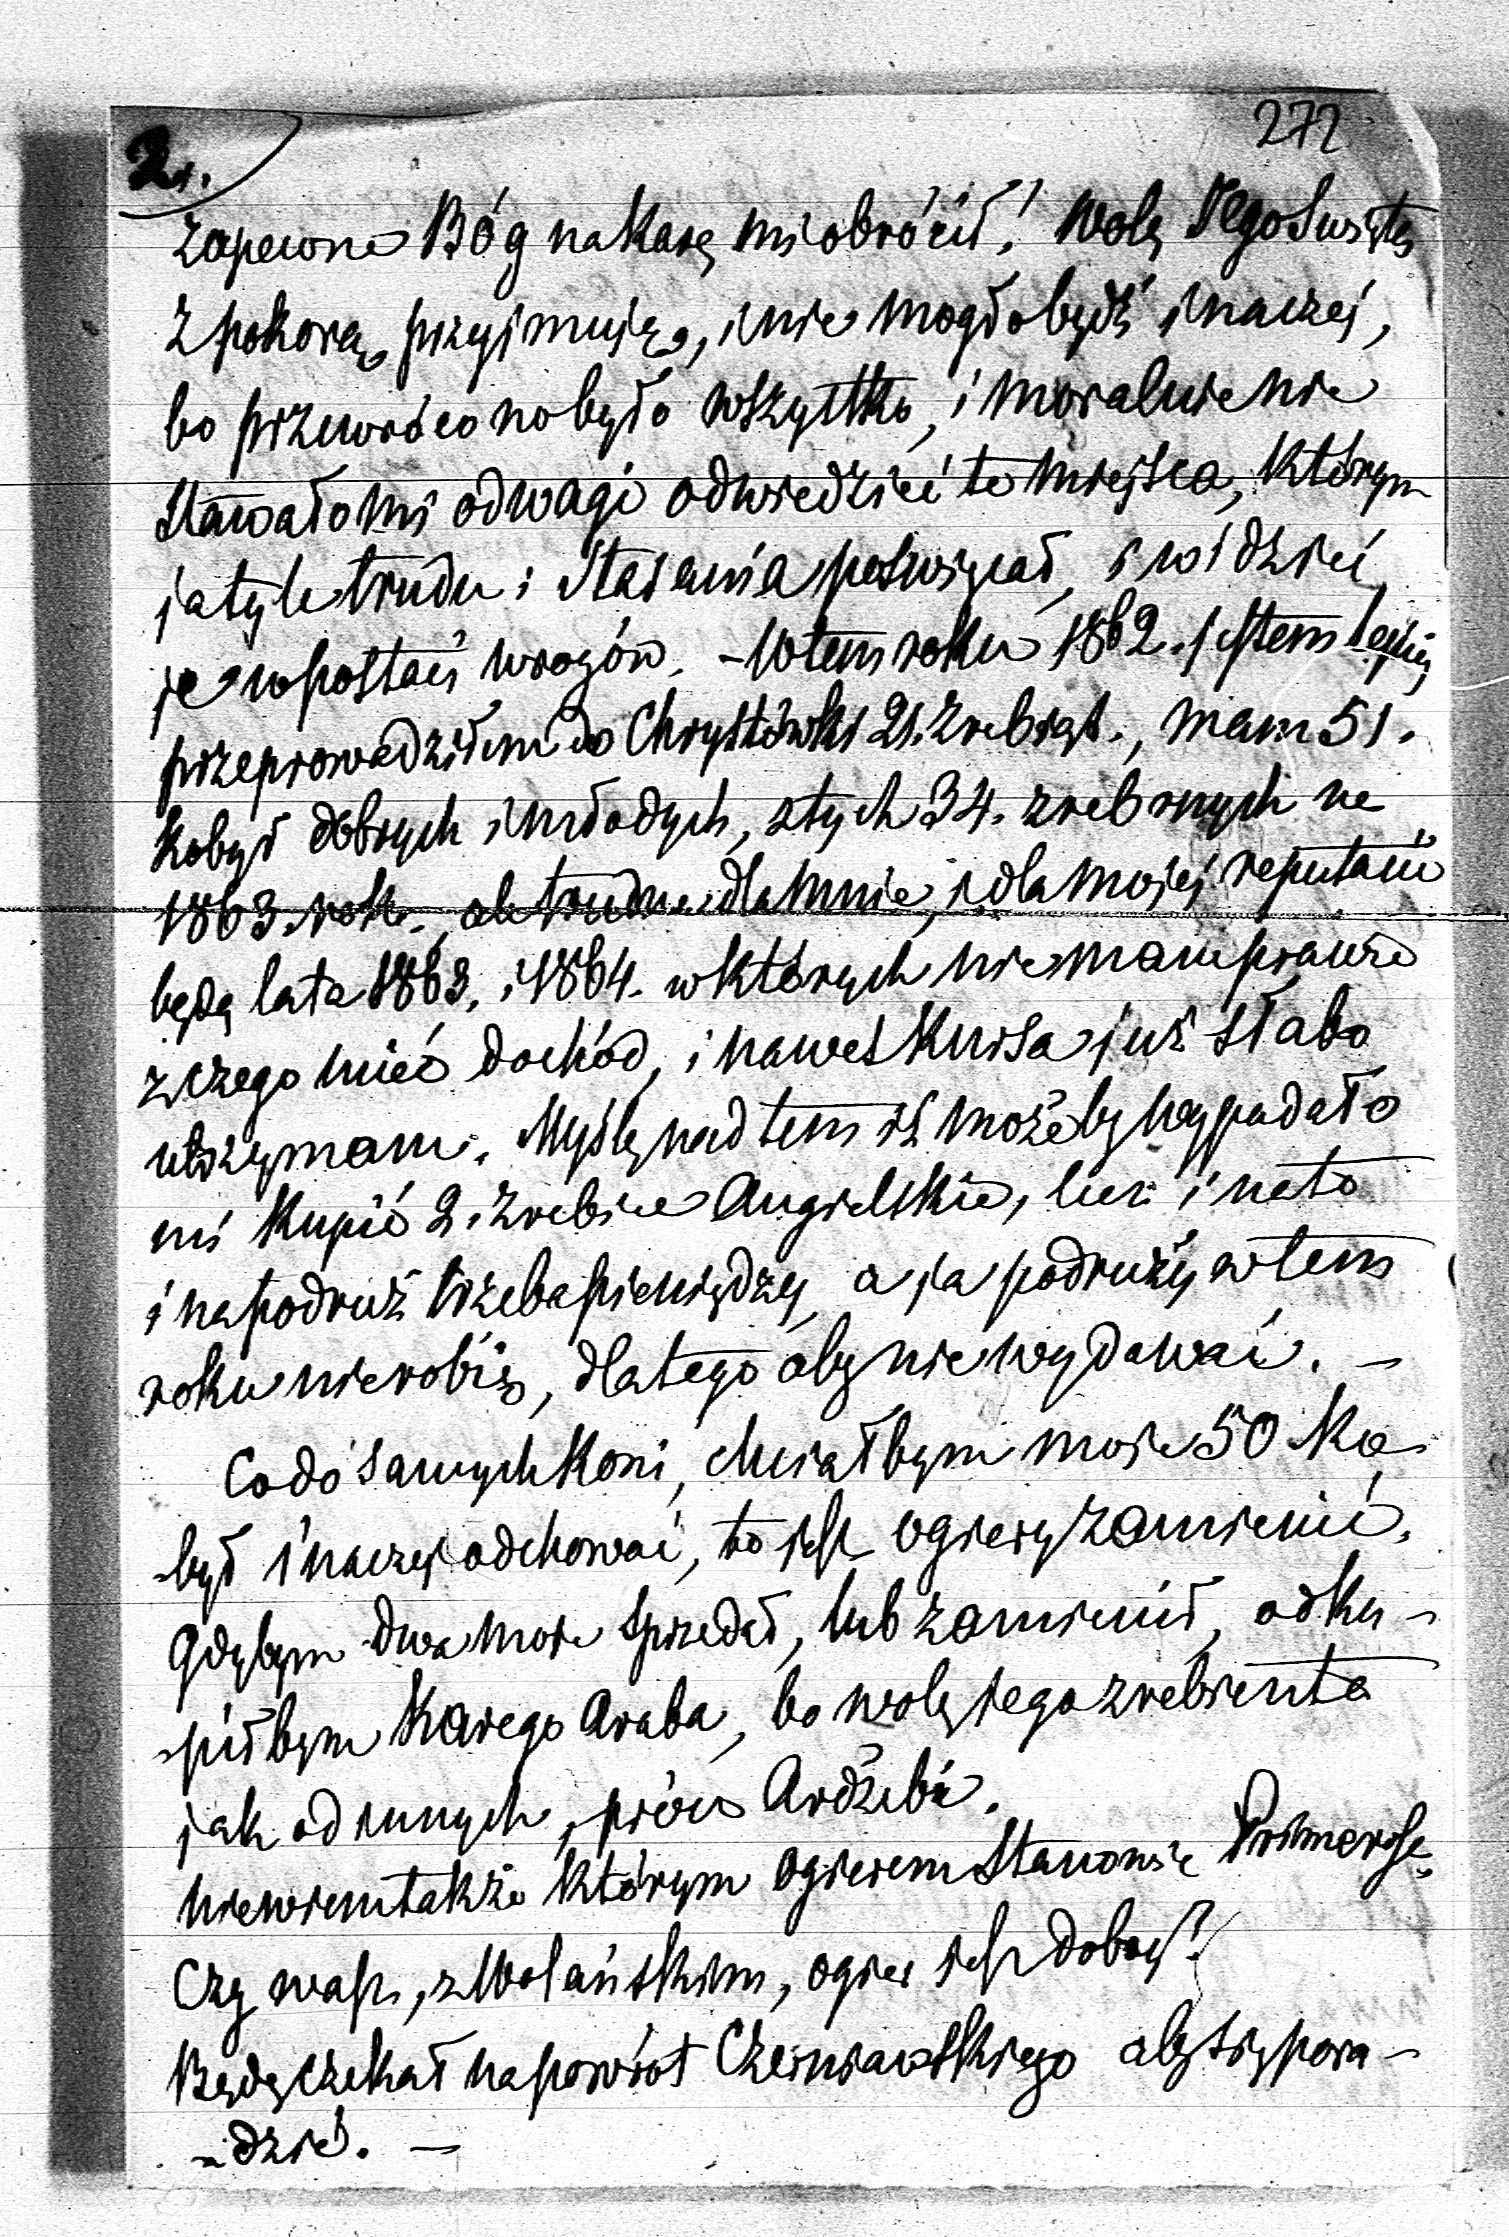 272
2.
zapewne Bóg na karę mi obrócił! Wolę Jego Świętą
z pokorą przyjmuję, i nie mogło bydź inaczej,
bo przewrócono było wszystko, i moralnie nie
stawało mi odwagi odwiedzić te miejsca, którym
ja tyle trudu i starania poświęcał, i widzieć
je w postaci wrogów. – W tem roku 1862. jestem lepiej
przeprowadziłem do Chrystówki 21. zrebiąt., mam 51.
kobył dobrych i młodych, z tych 34. zrebnych na
1863. rok., ale trudne dla mnie, i dla mojej reputacii
będą lata 1863. i 1864. w których nie mam prawie
z czego mieć dochód, i nawet Knisa już słabo
utrzymam. Myślę nad tem iż możeby wypadało
mi kupić 2. zrebice Angielskie, lecz i na to
i na podruż trzeba pieniędzy, a ja podruży w tem
roku nie robię, dlatego aby nie wydawać. –
Co do samych koni, chciałbym moje 50 ko-
-był inaczej odchować, to jest ogiery zamienić.
Gdybym dwa moje sprzedał, lub zamienił, odku-
-piłbym Karego Araba, bo wolę jego zrebienta
jak od innych, prócz Ardżebi.
nie wiem także którym ogierem stanowić Primerose.
Czy wasz, z Wolańskim, ogier jest dobry?
Będę czekał na powrót Czerniawskiego aby się pora-
-dzić. –